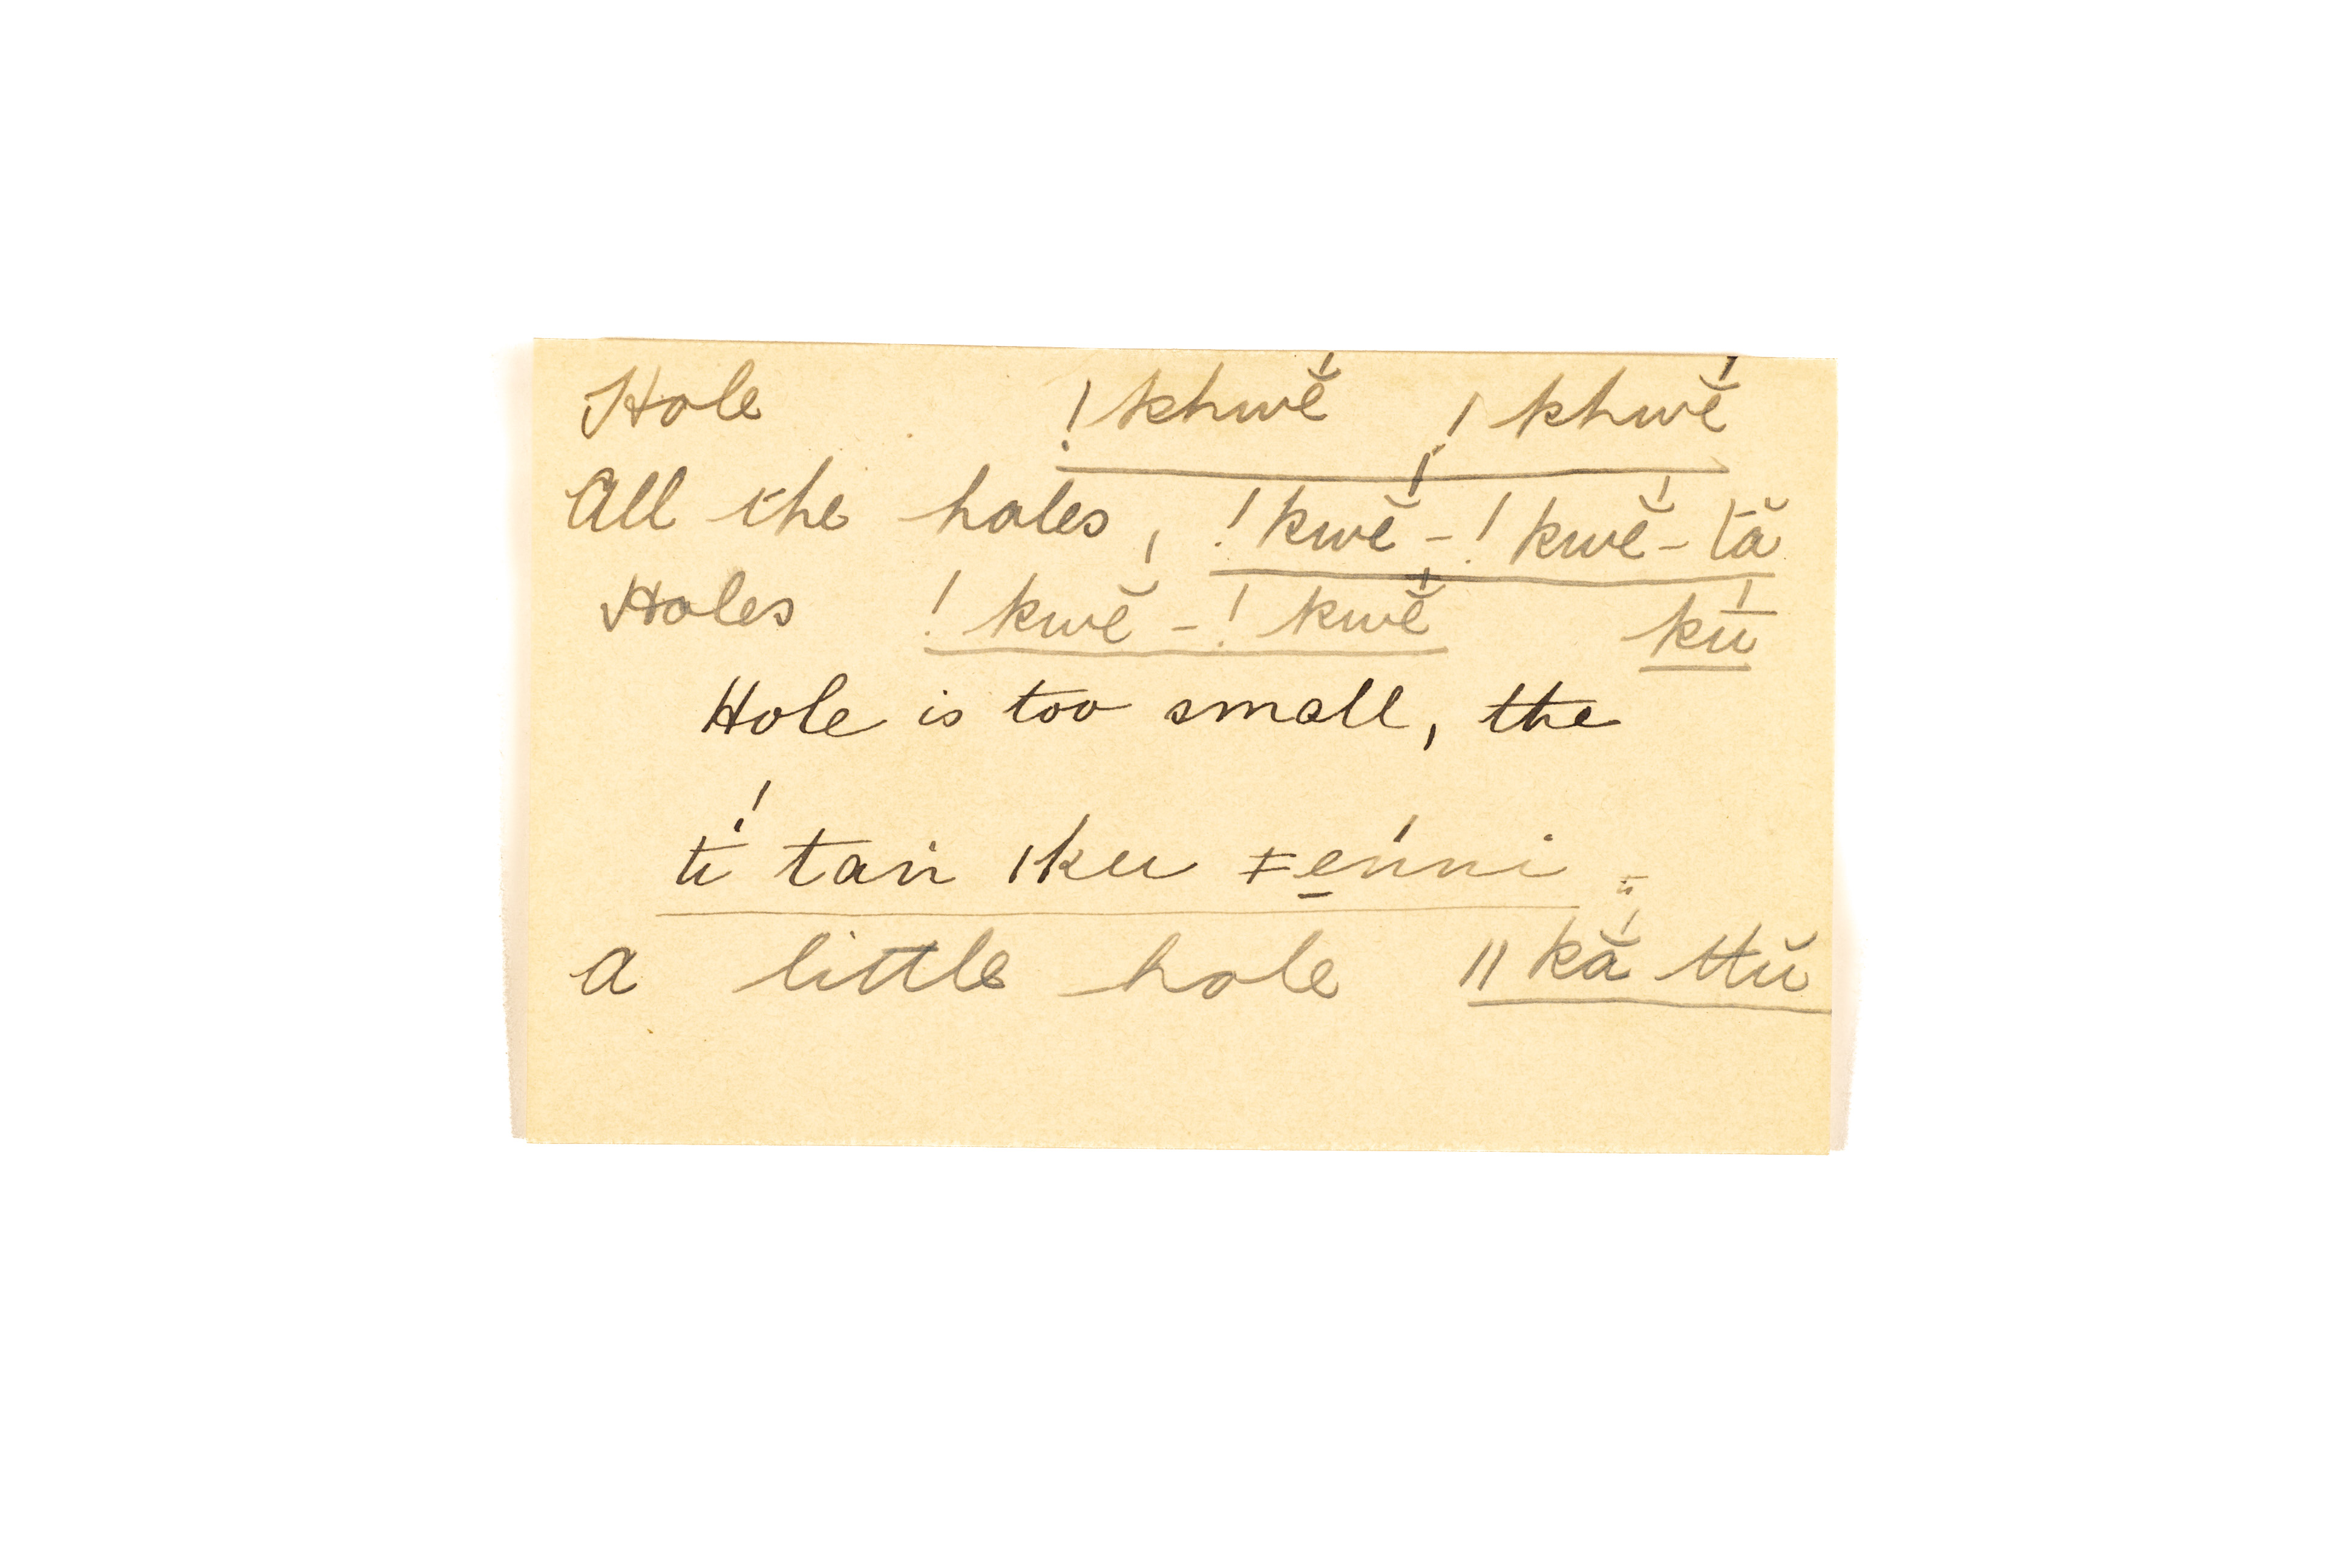 Hole !khwĕ́ !khwĕ́
All the holes, !kwĕ́-!kwĕ́-tă
Holes !kwĕ-!kwĕ́ kū́
Hole is too small, the
tí tań ǀku ǂe̱ńni
a little hole ǁkắ ttŭ